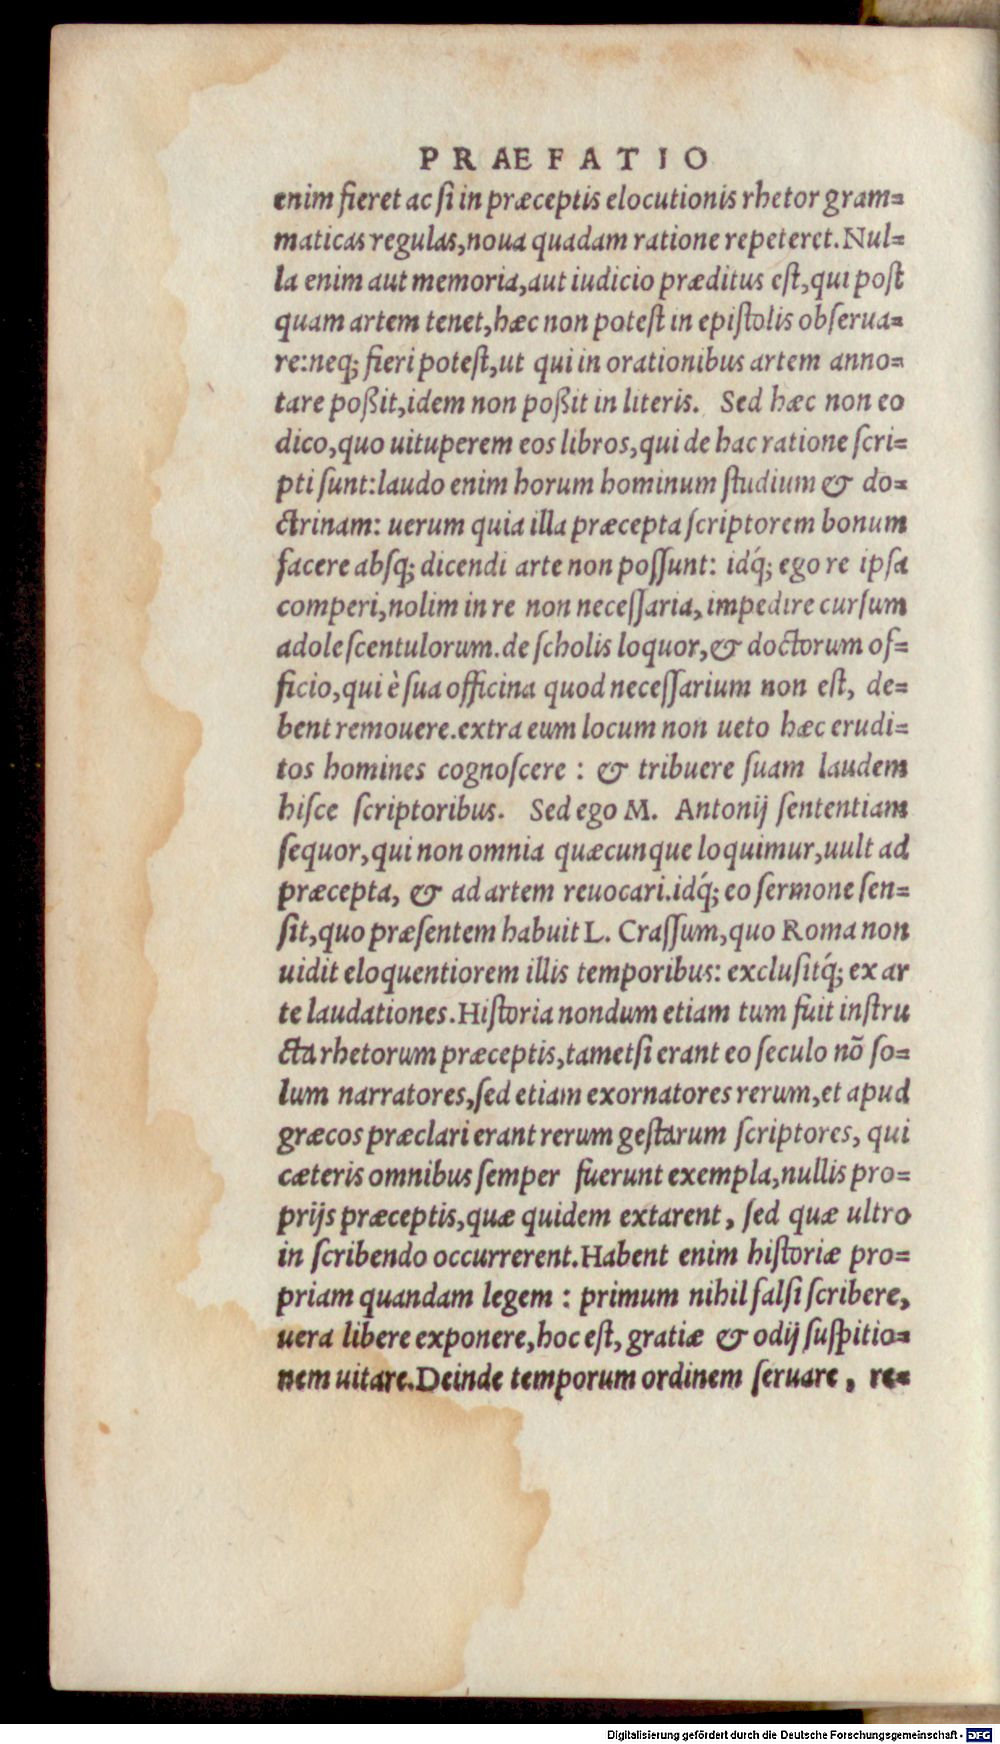 PRAEFATIO
enim fieret ac si in præceptis elocutionis rhetor gram=
maticas regulas, noua quadam ratione repeteret. Nul=
la enim aut memoria, aut iudicio præditus est, qui post
quam artem tenet, hæc non potest in epistolis obserua=
re: neq; fieri potest, ut qui in orationibus artem anno=
tare poßit, idem non poßit in literis. Sed hæc non eo
dico, quo uituperem eos libros, qui de hac ratione scri=
pti sunt: laudo enim horum hominum studium & do=
ctrinam: uerum quia illa præcepta scriptorem bonum
facere absq; dicendi arte non possunt: idq́; ego re ipsa
comperi, nolim in re non necessaria, impedire cursum
adolescentulorum. de scholis loquor, & doctorum of=
ficio, qui è sua officina quod necessarium non est, de=
bent remouere. extra eum locum non ueto hæc erudi=
tos homines cognoscere : & tribuere suam laudem
hisce scriptoribus. Sed ego M. Antonij sententiam
sequor, qui non omnia quæcunque loquimur, uult ad
præcepta, & ad artem reuocari. idq́; eo sermone sen=
sit, quo præsentem habuit L. Crassum, quo Roma non
uidit eloquentiorem illis temporibus: exclusitq́; ex ar
te laudationes. Historia nondum etiam tum fuit instru
cta rhetorum præceptis, tametsi erant eo seculo nõ so=
lum narratores, sed etiam exornatores rerum, et apud
græcos præclari erant rerum gestarum scriptores, qui
cæteris omnibus semper fuerunt exempla, nullis pro=
prijs præceptis, quæ quidem extarent, sed quæ ultro
in scribendo occurrerent. Habent enim historiæ pro=
priam quandam legem : primum nihil falsi scribere,
uera libere exponere, hoc est, gratiæ & odij suspitio=
nem uitare. Deinde temporum ordinem seruare, re=
Digitalisierung gefördert durch die Deutsche Forschungsgemeinschaft - DFG